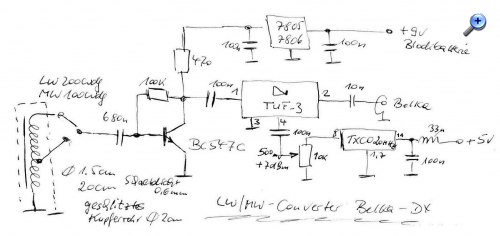 7805
7806
+9V
Blockbatterie
100n
470
100n
LW 200Wdg
MW 100Wdg
100K
100n
1
TUF-3
2
10n
Belka
680n
3
4
BC547C
100n
8
TXCO 20MHz
11
33µ
+5V
1,7
500mV
+7dBm
10K
100n
Φ 1.5cm
20cm
0.6mm
geschlitztes
Kupferrohr Φ 2cm
LW/MW-Converter Belka-DX